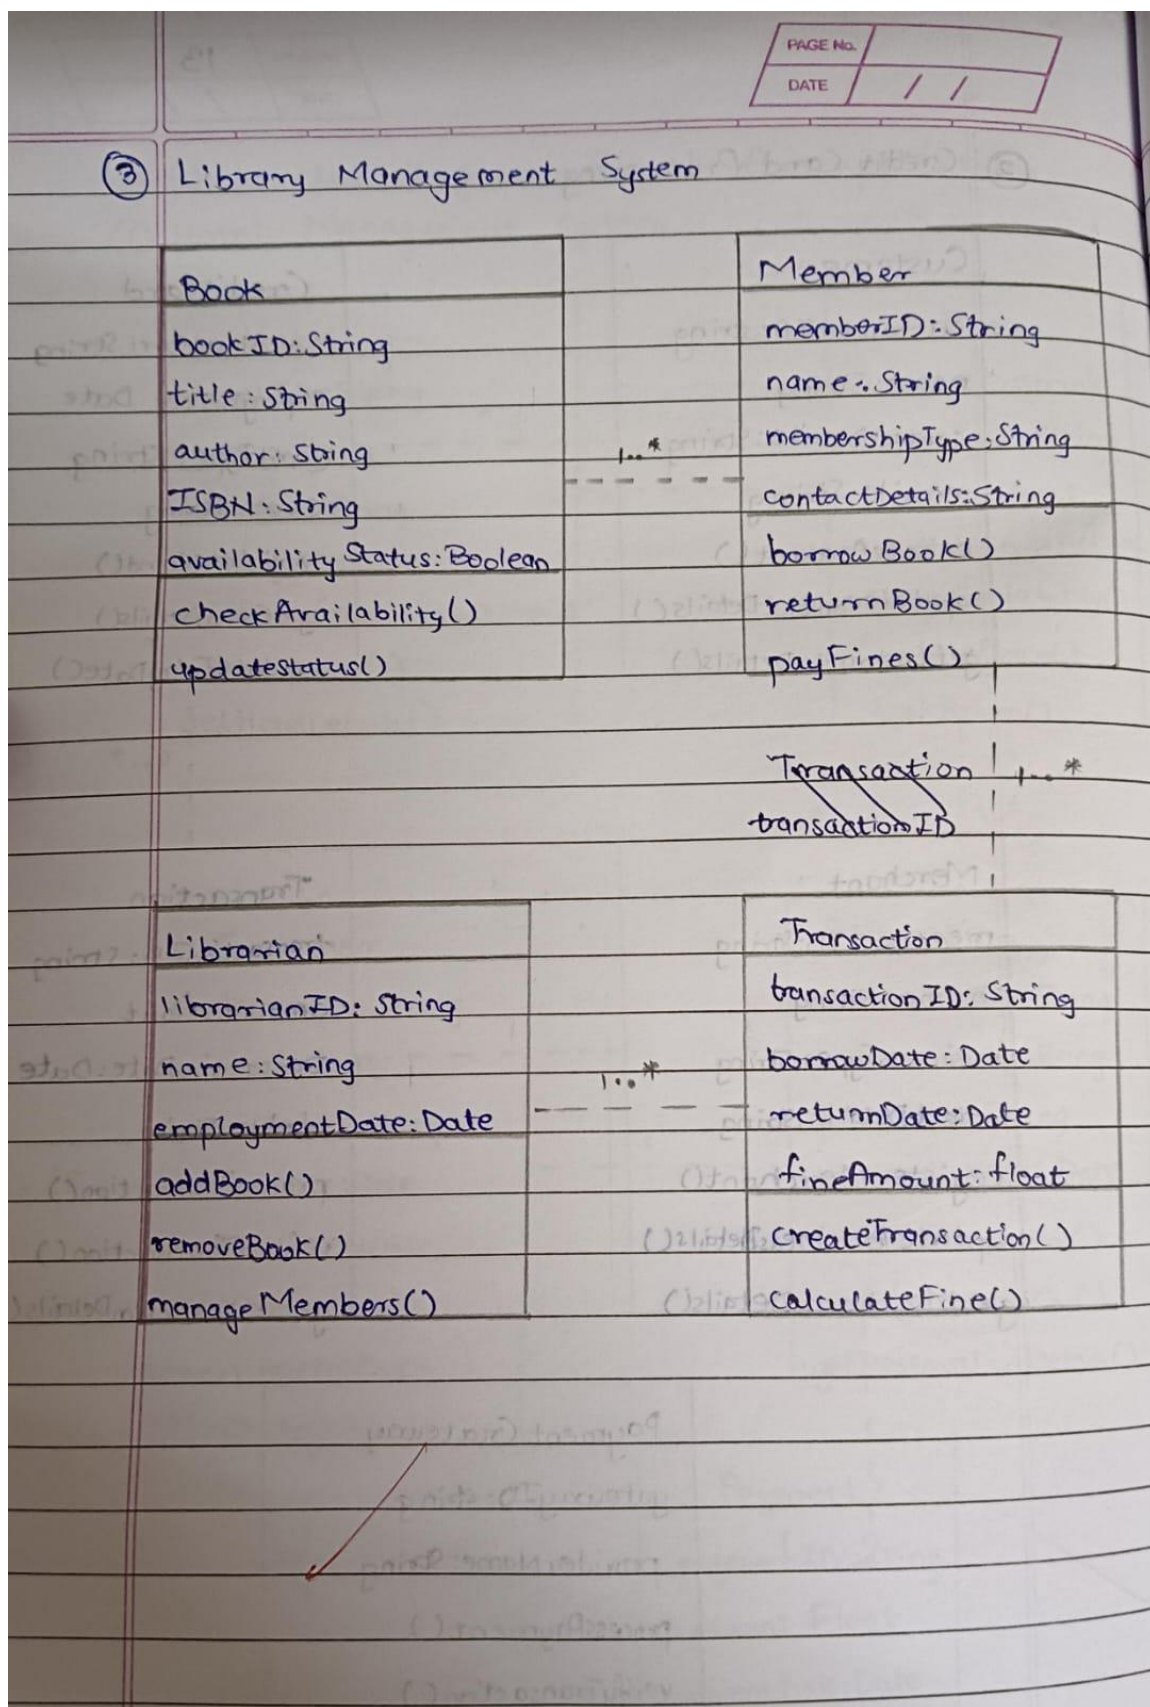 PAGE No.
DATE / /
③ Library Management System
Book
bookID:String
title: String
author: String
ISBN: String
availabilityStatus:Boolean
checkAvailability()
updatestatus()
1..*
Member
memberID: String
name: String
membershipType: String
contactDetails: String
borrowBook()
returnBook()
payFines()
Transaction
transactionID
1..*
Librarian
librarianID: String
name: String
employmentDate: Date
addBook()
removeBook()
manageMembers()
1..*
Transaction
transactionID: String
borrowDate: Date
returnDate: Date
fineAmount: float
createTransaction()
calculateFine()